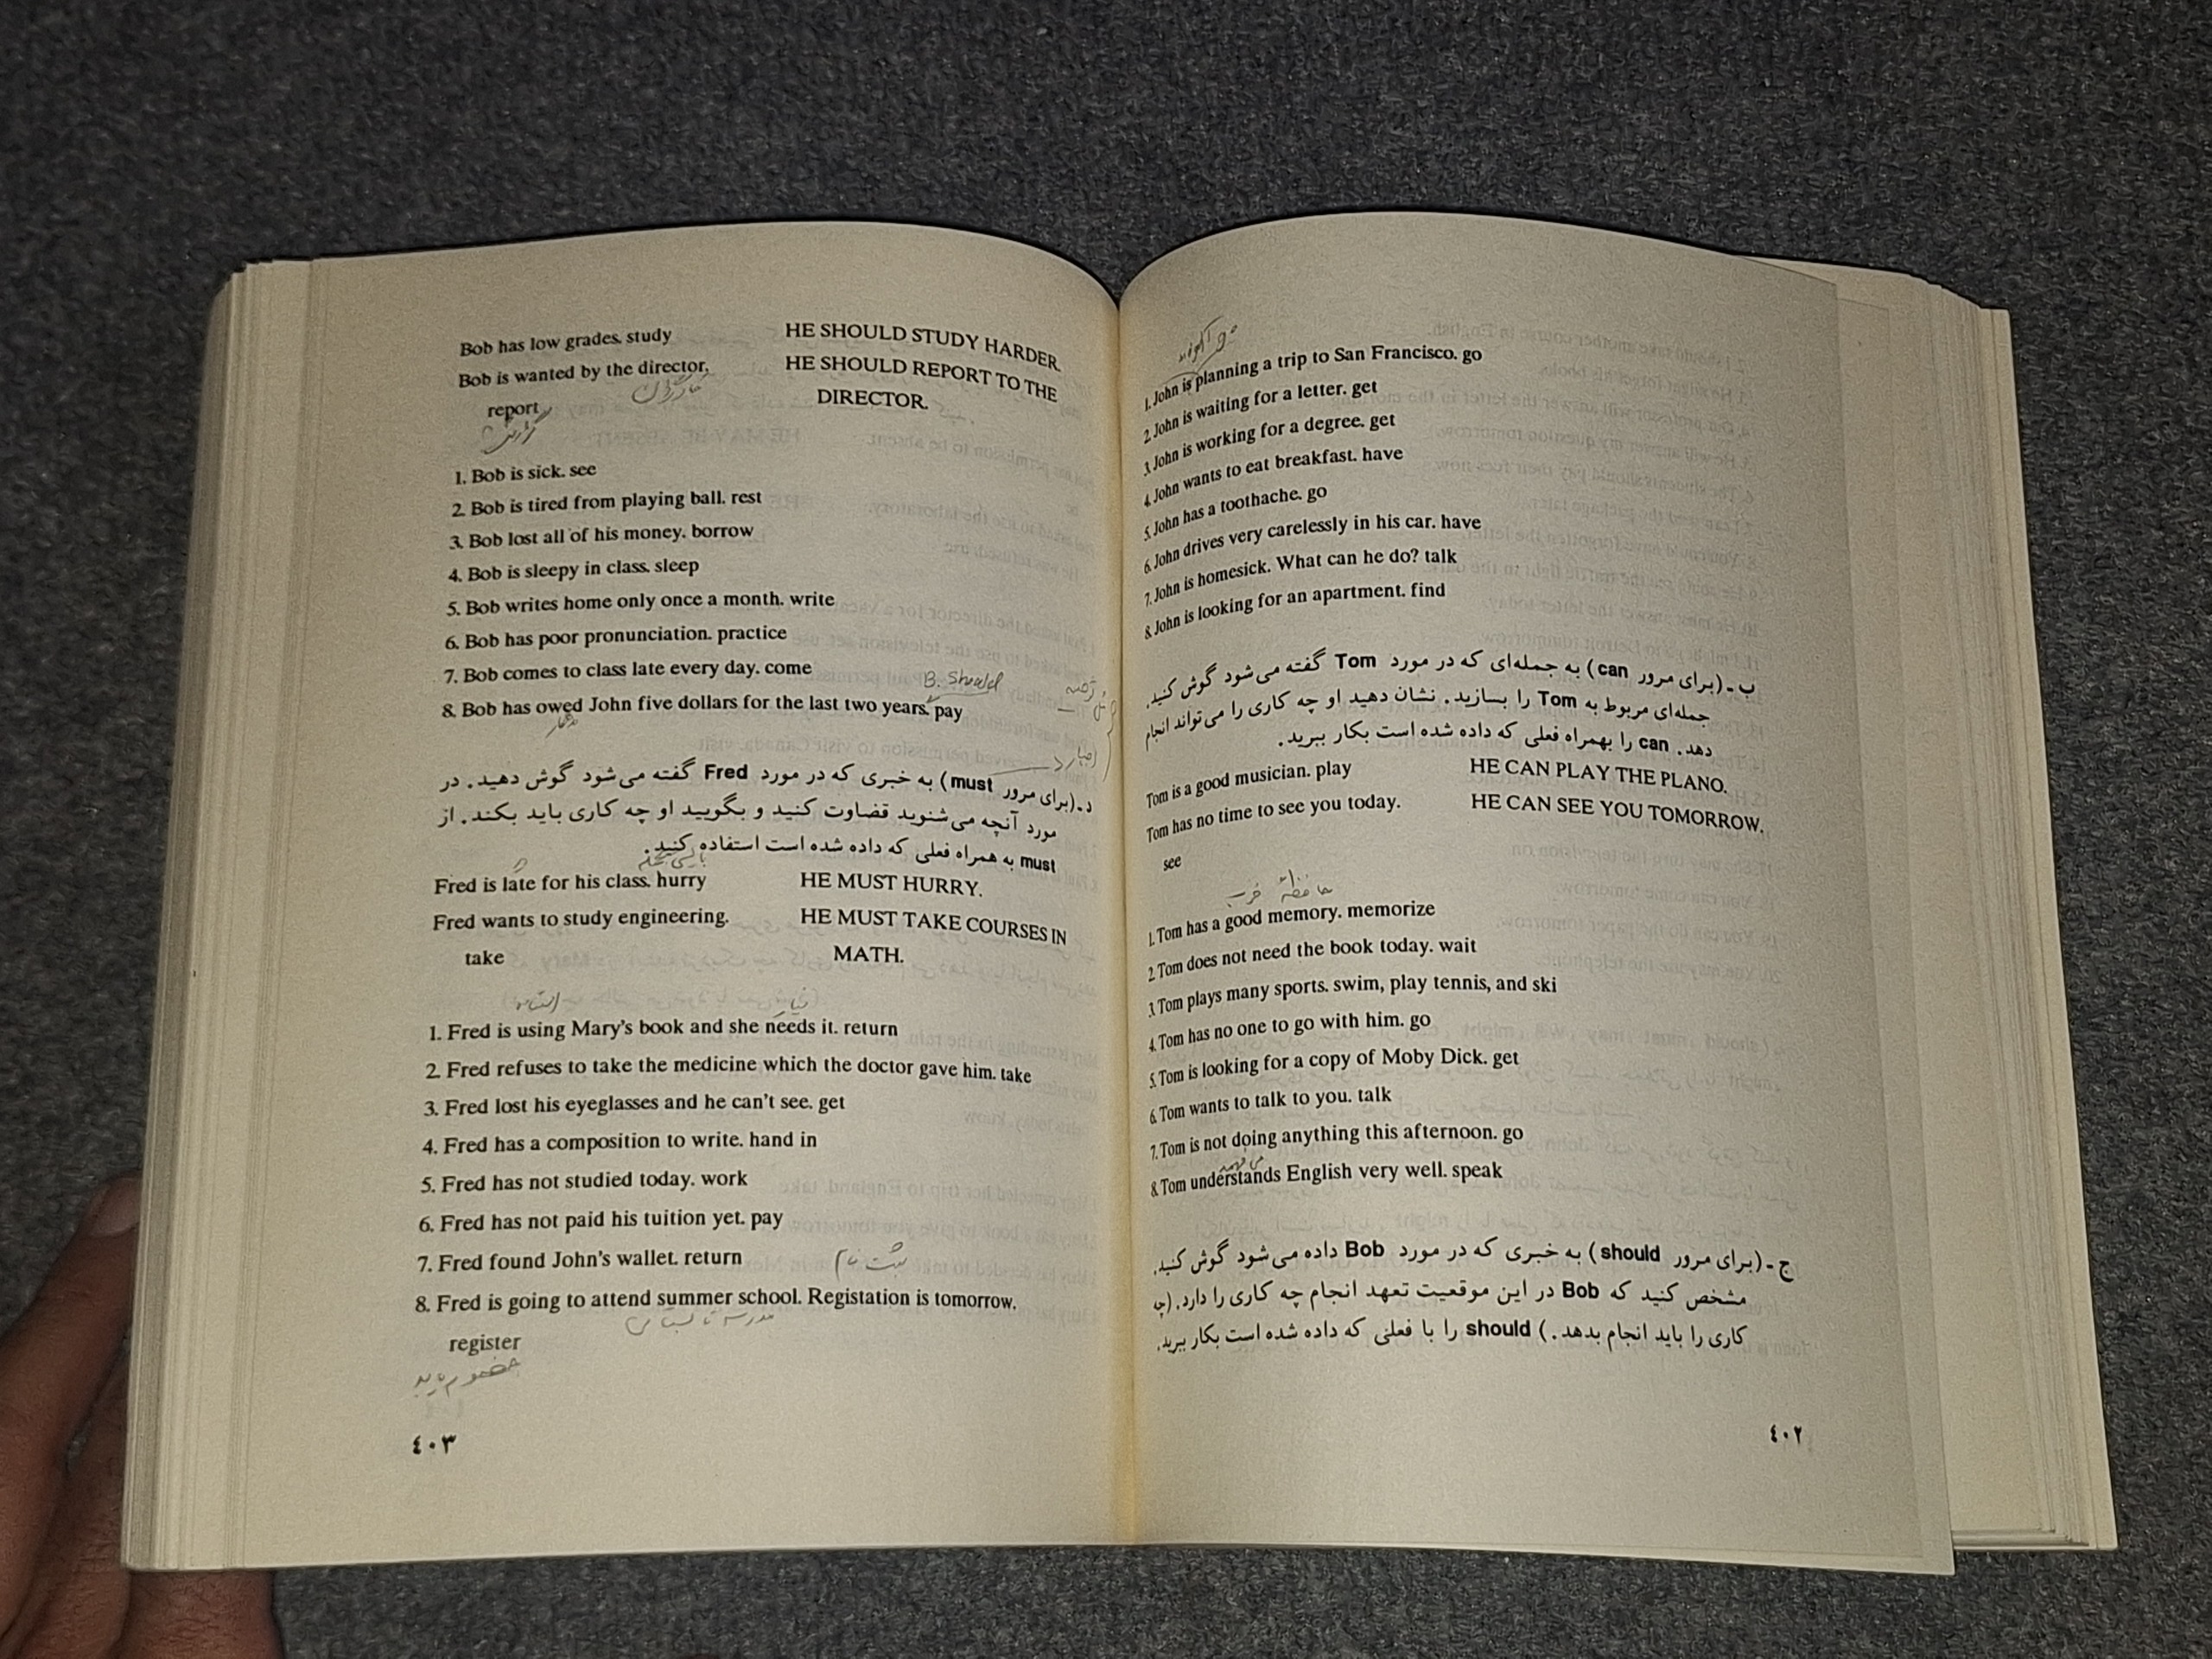 1. John is planning a trip to San Francisco. go
2. John is waiting for a letter. get
3. John is working for a degree. get
4. John wants to eat breakfast. have
5. John has a toothache. go
6. John drives very carelessly in his car. have
7. John is homesick. What can he do? talk
8. John is looking for an apartment. find
ب ـ (برای مرور can) به جمله‌ای که در مورد Tom گفته می‌شود گوش کنید.
جمله‌ای مربوط به Tom را بسازید. نشان دهید او چه کاری را می‌تواند انجام
دهد. can را بهمراه فعلی که داده شده است بکار ببرید.
Tom is a good musician. play HE CAN PLAY THE PLANO.
Tom has no time to see you today. HE CAN SEE YOU TOMORROW.
see
حافظهٔ خوب
1. Tom has a good memory. memorize
2. Tom does not need the book today. wait
3. Tom plays many sports. swim, play tennis, and ski
4. Tom has no one to go with him. go
5. Tom is looking for a copy of Moby Dick. get
6. Tom wants to talk to you. talk
7. Tom is not doing anything this afternoon. go
می فهمد
8. Tom understands English very well. speak
ج ـ (برای مرور should) به خبری که در مورد Bob داده می‌شود گوش کنید.
مشخص کنید که Bob در این موقعیت تعهد انجام چه کاری را دارد. (چه
کاری را باید انجام بدهد.) should را با فعلی که داده شده است بکار ببرید.
٤٠٢
Bob has low grades. study HE SHOULD STUDY HARDER.
Bob is wanted by the director. HE SHOULD REPORT TO THE
report DIRECTOR.
گزارش
1. Bob is sick. see
2. Bob is tired from playing ball. rest
3. Bob lost all of his money. borrow
4. Bob is sleepy in class. sleep
5. Bob writes home only once a month. write
6. Bob has poor pronunciation. practice
7. Bob comes to class late every day. come
B. Should
8. Bob has owed John five dollars for the last two years. pay
اجبار
د ـ (برای مرور must) به خبری که در مورد Fred گفته می‌شود گوش دهید. در
مورد آنچه می‌شنوید قضاوت کنید و بگویید او چه کاری باید بکند. از
must به همراه فعلی که داده شده است استفاده کنید.
Fred is late for his class. hurry HE MUST HURRY.
Fred wants to study engineering. HE MUST TAKE COURSES IN
take MATH.
نیاز
1. Fred is using Mary's book and she needs it. return
2. Fred refuses to take the medicine which the doctor gave him. take
3. Fred lost his eyeglasses and he can't see. get
4. Fred has a composition to write. hand in
5. Fred has not studied today. work
6. Fred has not paid his tuition yet. pay
7. Fred found John's wallet. return
ثبت نام
8. Fred is going to attend summer school. Registation is tomorrow.
مدرسه تابستانی
register
٤٠٣